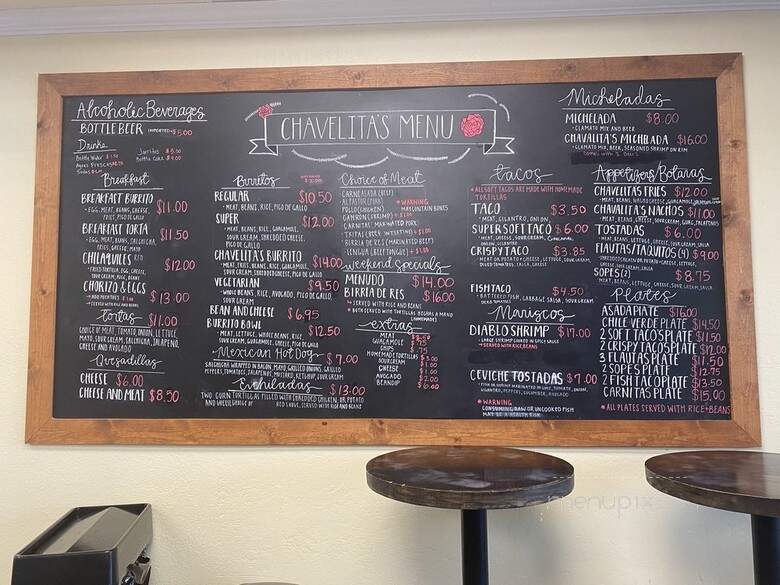 CHAVELITA'S MENU
Alcoholic Beverages
BOTTLE BEER IMPORTED $5.00
Drinks
Bottle Water
Jarritos $3.00
Bottle Coke $4.00
Breakfast
BREAKFAST BURRITO $11.00
- EGG, MEAT, BEANS, CHEESE, FRIES, PICO DE GALLO
BREAKFAST TORTA $11.50
- EGG, MEAT, BEANS, SALCHICHA, FRIES, CHEESE, MAYO
CHILAQUILES RED $12.00
- FRIED TORTILLA, EGG, CHEESE, SOUR CREAM, MEAT, SALSA
CHORIZO & EGGS $13.00
• ADD POTATOES
• SERVED WITH RICE AND BEANS
Tortas $11.00
CHOICE OF MEAT, TOMATO, ONION, LETTUCE,
MAYO, SOUR CREAM, SALCHICHA, JALAPENO,
CHEESE AND AVOCADO
Quesadillas
CHEESE $6.00
CHEESE AND MEAT $8.50
Burritos
REGULAR $10.50
- MEAT, BEANS, RICE, PICO DE GALLO
SUPER $12.00
- MEAT, BEANS, RICE, GUACAMOLE,
SOUR CREAM, SHREDDED CHEESE,
PICO DE GALLO
CHAVELITA'S BURRITO $14.00
- MEAT, FRIES, BEANS, RICE, GUACAMOLE,
SOUR CREAM, SHREDDED CHEESE, PICO DE GALLO
VEGETARIAN $9.50
- WHOLE BEANS, RICE, AVOCADO, PICO DE GALLO,
SOUR CREAM
BEAN AND CHEESE $6.95
BURRITO BOWL $12.50
- MEAT, LETTUCE, WHOLE BEANS, RICE,
SOUR CREAM, GUACAMOLE, CHEESE, PICO DE GALLO
Mexican Hot Dog $7.00
SALCHICHA WRAPPED IN BACON, MAYO, GRILLED ONIONS, GRILLED
PEPPERS, TOMATOES, JALAPENOS, MUSTARD, KETCHUP, SOUR CREAM
Enchiladas $13.00
TWO CORN TORTILLAS FILLED WITH SHREDDED CHICKEN OR POTATO
AND CHEESE RED SAUCE, SERVED WITH RICE AND BEANS
Choice of Meat
CARNE ASADA (BEEF)
AL PASTOR (PORK)
POLLO (CHICKEN)
* WARNING
MAY CONTAIN BONES
CAMARON (SHRIMP) + $1.00
CARNITAS MARINATED PORK
TRIPAS (BEEF INTESTINE) + $1.00
BIRRIA DE RES (MARINATED BEEF)
LENGUA (BEEF TONGUE) + $1.00
Weekend Specials
MENUDO $14.00
BIRRIA DE RES $16.00
• SERVED WITH RICE AND BEANS
* BOTH SERVED WITH TORTILLAS
extras
MEAT
GUACAMOLE
CHIPS
HOMEMADE TORTILLAS
SOUR CREAM
CHEESE
AVOCADO
BEAN DIP
Tacos
* ALL SOFT TACOS ARE MADE WITH HOMEMADE TORTILLAS
TACO $3.50
- MEAT, CILANTRO, ONION
SUPER SOFT TACO $6.00
- MEAT, CHEESE, SOUR CREAM, GUACAMOLE,
ONION, CILANTRO
CRISPY TACO $3.85
MEAT OR POTATO + CHEESE, LETTUCE, SOUR CREAM,
DICED TOMATOES, SALSA, CHEESE
FISH TACO $4.50
• BATTERED FISH, CABBAGE SALSA, SOUR CREAM
Mariscos
DIABLO SHRIMP $17.00
• LARGE SHRIMP COOKED IN SPICY SAUCE
• SERVED WITH RICE BEANS
CEVICHE TOSTADAS $7.00
CUCUMBER, AVOCADO
* WARNING
CONSUMING RAW OR UNCOOKED FISH
MAY BE A HEALTH RISK
Micheladas
MICHELADA $8.00
• CLAMATO MIX AND BEER
CHAVALITA'S MICHILADA $16.00
• CLAMATO MIX, BEER, SEASONED SHRIMP ON RIM
Appetizers/Botanas
CHAVELITAS FRIES $12.00
CHAVALITA'S NACHOS $11.00
TOSTADAS $6.00
- MEAT, BEANS, LETTUCE, CHEESE, CREAM, SALSA
FLAUTAS/TAQUITOS (4) $9.00
SOPES (2) $8.75
MEAT, BEANS, LETTUCE, CHEESE, SOUR CREAM, SALSA
Plates
ASADA PLATE $16.00
CHILE VERDE PLATE $14.50
2 SOFT TACOS PLATE $11.50
2 CRISPY TACOS PLATE $12.00
3 FLAUTAS PLATE $11.50
2 SOPES PLATE $12.75
2 FISH TACO PLATE $13.50
CARNITAS PLATE $15.00
* ALL PLATES SERVED WITH RICE + BEANS
menupix